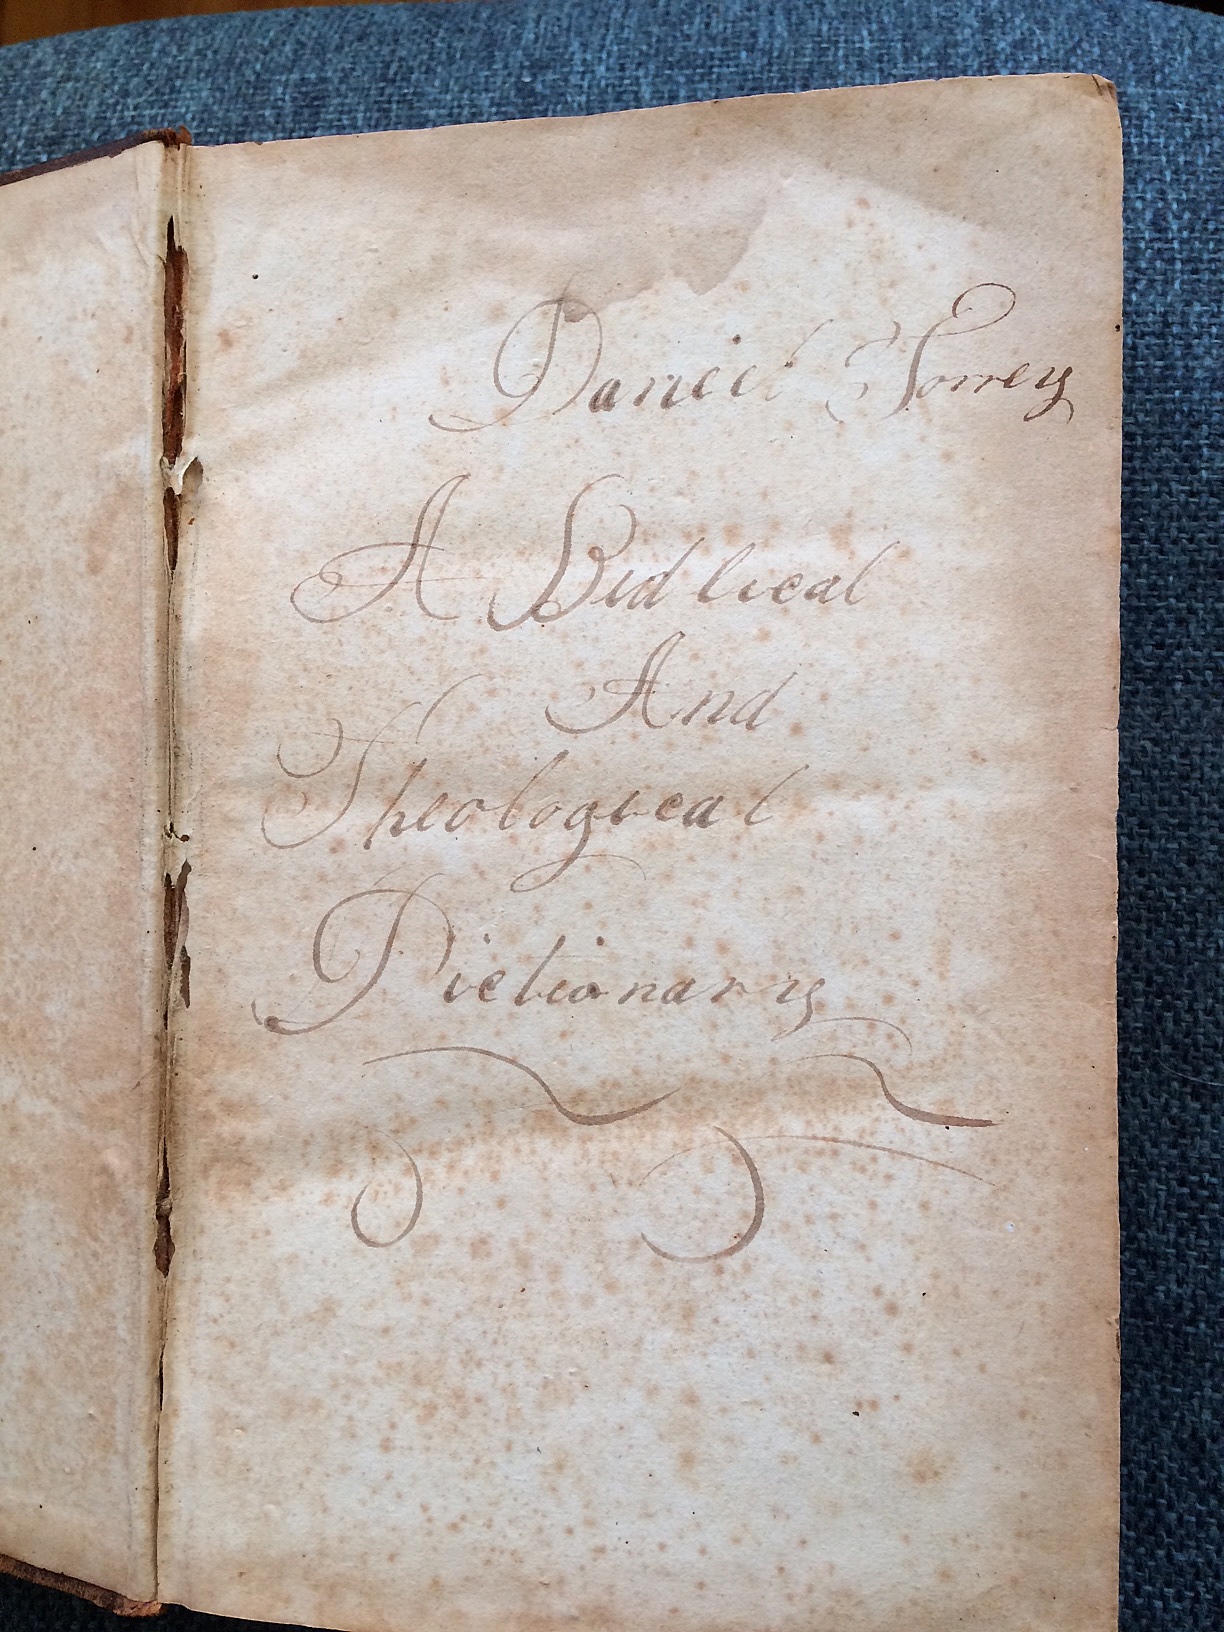 Daniel Torrey
A Bidlical
And
Theological
Dictionary